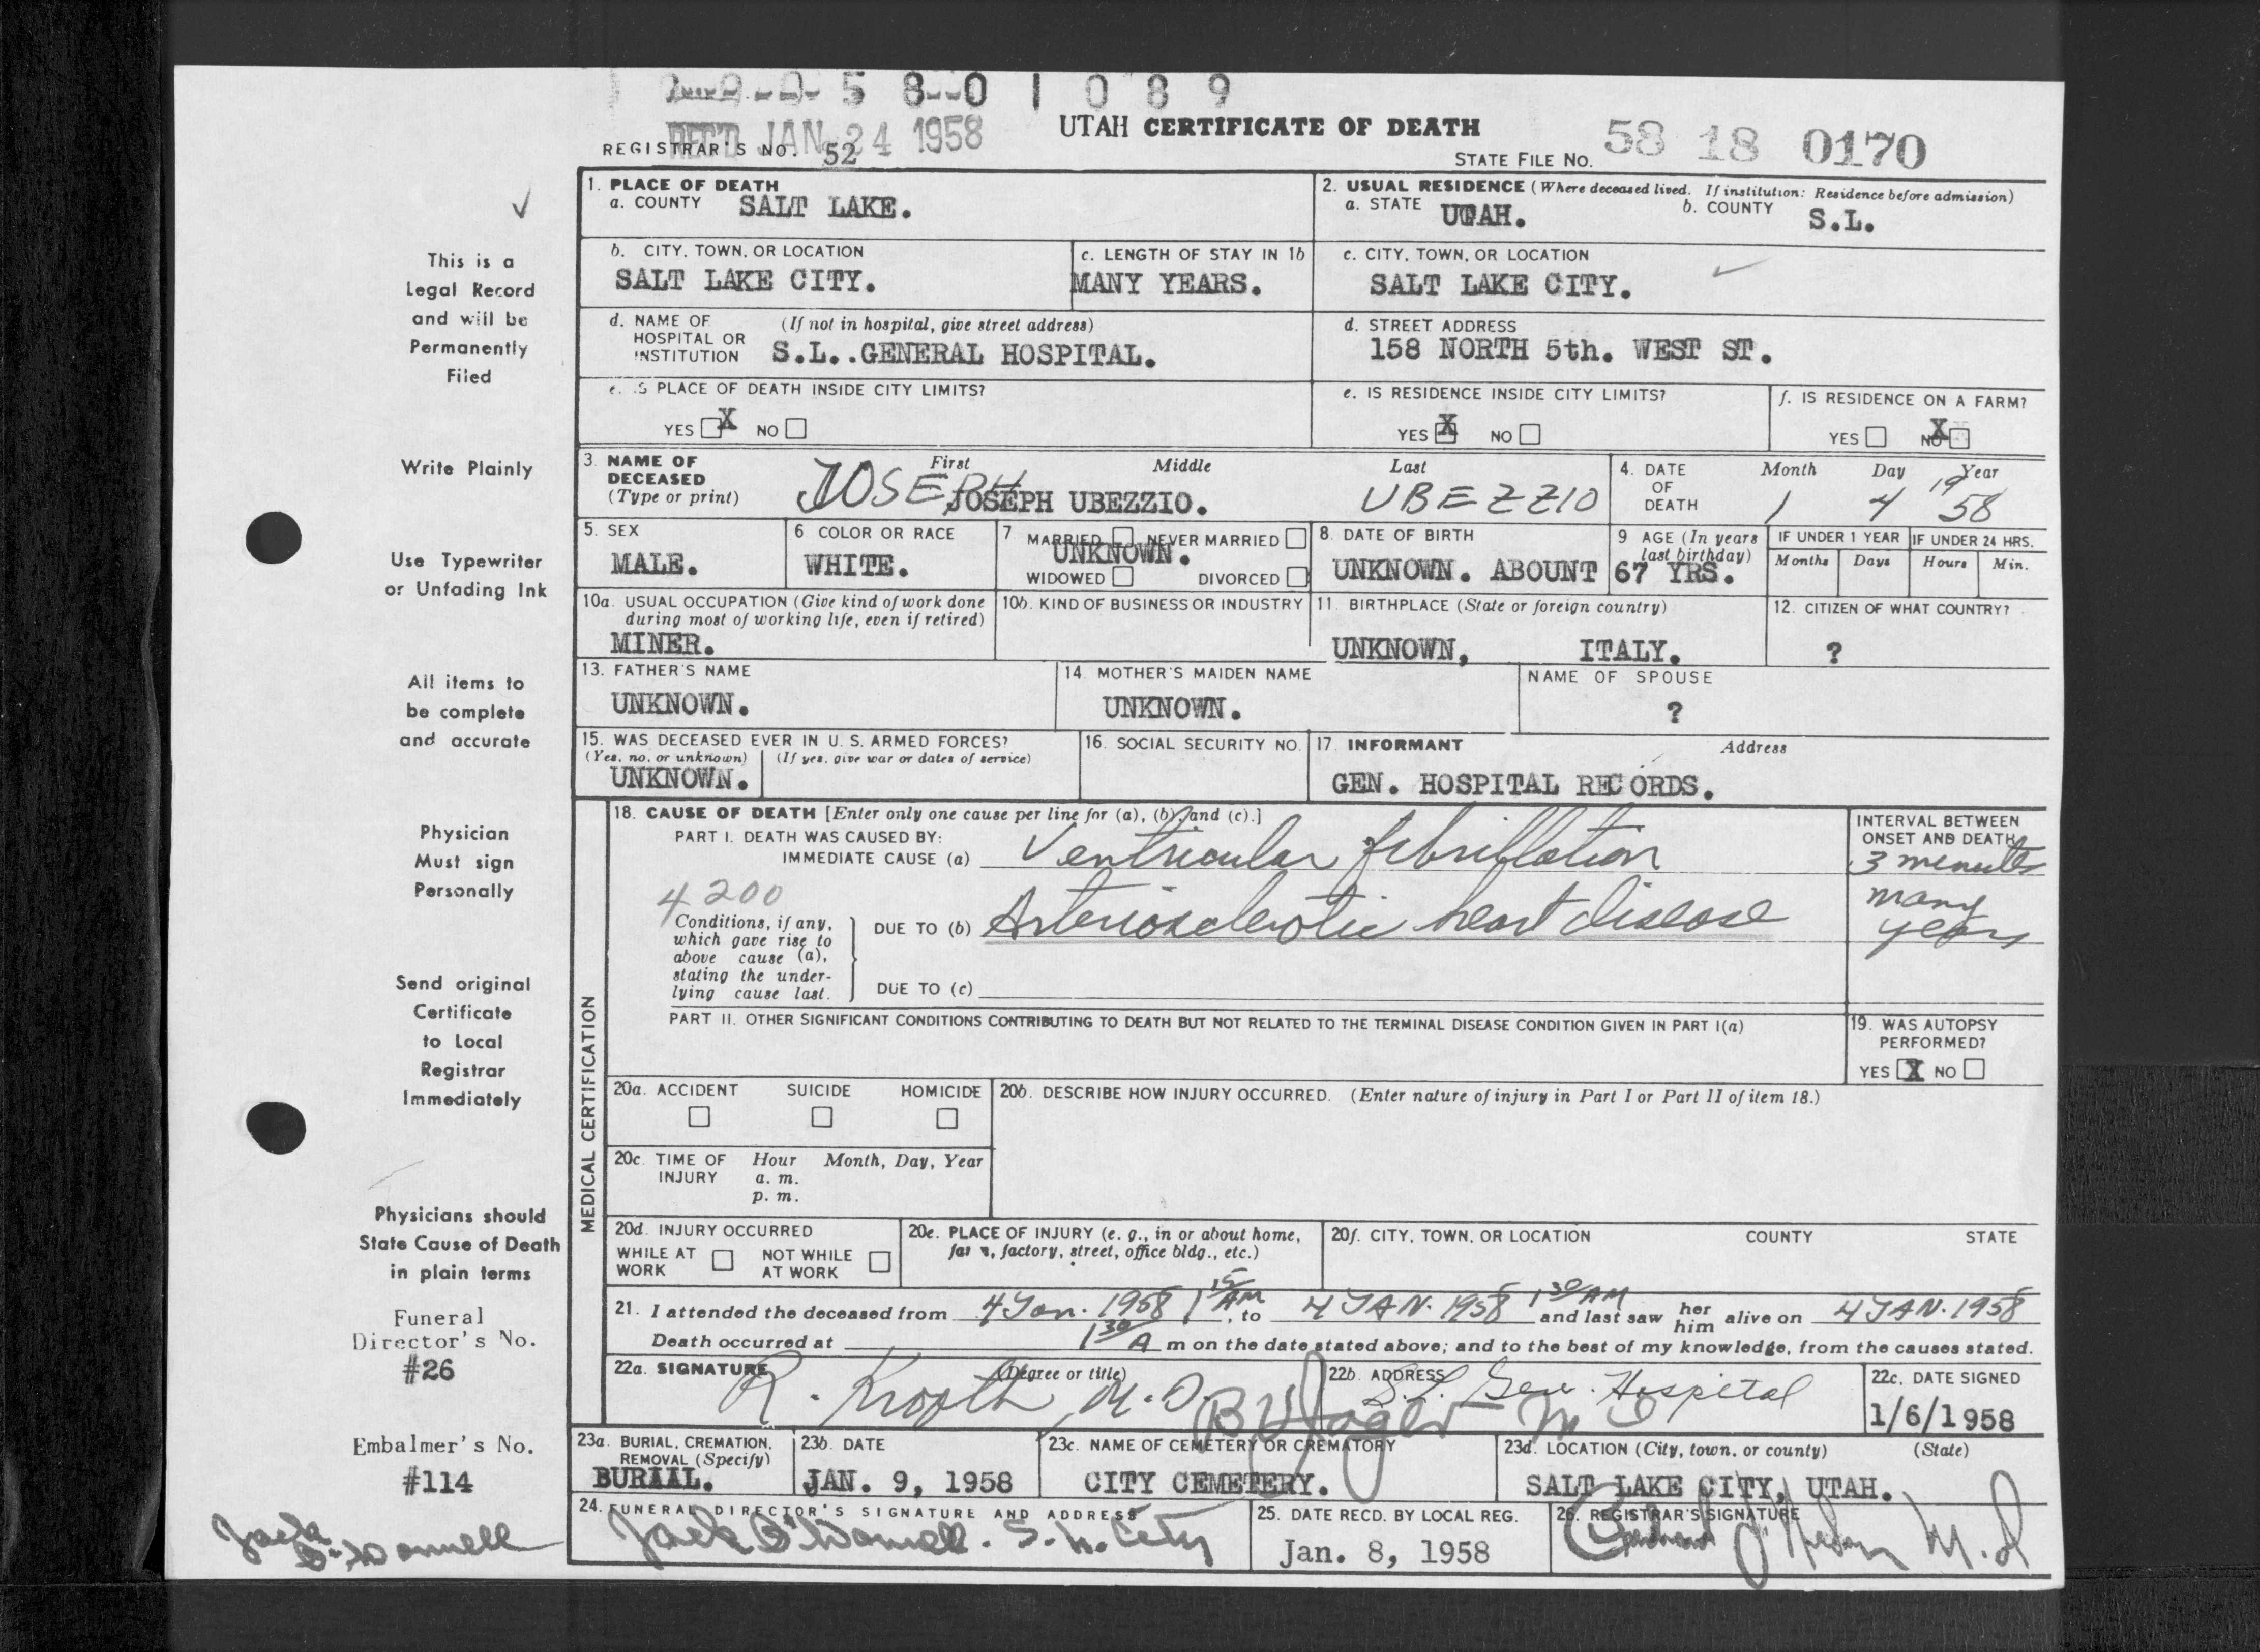 5 8 0 1 0 8 9
REC'D JAN 24 1958
UTAH CERTIFICATE OF DEATH
REGISTRAR'S NO. 52
STATE FILE NO. 58 18 0170
1. PLACE OF DEATH
a. COUNTY SALT LAKE.
2. USUAL RESIDENCE (Where deceased lived. If institution: Residence before admission)
a. STATE UTAH. b. COUNTY S.L.
b. CITY, TOWN, OR LOCATION
SALT LAKE CITY.
c. LENGTH OF STAY IN 1b
MANY YEARS.
c. CITY, TOWN, OR LOCATION
SALT LAKE CITY.
d. NAME OF HOSPITAL OR INSTITUTION (If not in hospital, give street address)
S.L..GENERAL HOSPITAL.
d. STREET ADDRESS
158 NORTH 5th. WEST ST.
e. IS PLACE OF DEATH INSIDE CITY LIMITS?
YES X NO
e. IS RESIDENCE INSIDE CITY LIMITS?
YES X NO
f. IS RESIDENCE ON A FARM?
YES NO X
3. NAME OF DECEASED (Type or print)
First Middle Last
JOSEPH UBEZZIO
JOSEPH UBEZZIO.
4. DATE OF DEATH
Month Day Year
1 4 1958
5. SEX
MALE.
6 COLOR OR RACE
WHITE.
7 MARRIED NEVER MARRIED
UNKNOWN.
WIDOWED DIVORCED
8. DATE OF BIRTH
UNKNOWN. ABOUNT
9 AGE (In years last birthday)
67 YRS.
IF UNDER 1 YEAR
Months Days
IF UNDER 24 HRS.
Hours Min.
10a. USUAL OCCUPATION (Give kind of work done during most of working life, even if retired)
MINER.
10b. KIND OF BUSINESS OR INDUSTRY
11. BIRTHPLACE (State or foreign country)
UNKNOWN, ITALY.
12. CITIZEN OF WHAT COUNTRY?
?
13. FATHER'S NAME
UNKNOWN.
14. MOTHER'S MAIDEN NAME
UNKNOWN.
NAME OF SPOUSE
?
15. WAS DECEASED EVER IN U. S. ARMED FORCES?
(Yes, no, or unknown) (If yes, give war or dates of service)
UNKNOWN.
16. SOCIAL SECURITY NO.
17. INFORMANT Address
GEN. HOSPITAL RECORDS.
MEDICAL CERTIFICATION
18. CAUSE OF DEATH [Enter only one cause per line for (a), (b), and (c).]
PART I. DEATH WAS CAUSED BY:
IMMEDIATE CAUSE (a) Ventricular fibrillation
INTERVAL BETWEEN ONSET AND DEATH
3 minutes
4200
Conditions, if any, which gave rise to above cause (a), stating the underlying cause last.
DUE TO (b) Arteriosclerotic heart disease
many years
DUE TO (c)
PART II. OTHER SIGNIFICANT CONDITIONS CONTRIBUTING TO DEATH BUT NOT RELATED TO THE TERMINAL DISEASE CONDITION GIVEN IN PART I(a)
19. WAS AUTOPSY PERFORMED?
YES X NO
20a. ACCIDENT SUICIDE HOMICIDE
20b. DESCRIBE HOW INJURY OCCURRED. (Enter nature of injury in Part I or Part II of item 18.)
20c. TIME OF INJURY Hour Month, Day, Year
a. m.
p. m.
20d. INJURY OCCURRED
WHILE AT WORK NOT WHILE AT WORK
20e. PLACE OF INJURY (e. g., in or about home, farm, factory, street, office bldg., etc.)
20f. CITY, TOWN, OR LOCATION COUNTY STATE
21. I attended the deceased from 4 Jan. 1958 1 15 AM, to 4 JAN. 1958 1 30 AM and last saw her him alive on 4 JAN. 1958
Death occurred at 1 30 A m on the date stated above; and to the best of my knowledge, from the causes stated.
22a. SIGNATURE (Degree or title)
R. Krooth M.D.
22b. ADDRESS
S.L. Gen. Hospital
22c. DATE SIGNED
1/6/1958
23a. BURIAL, CREMATION, REMOVAL (Specify)
BURIAL.
23b. DATE
JAN. 9, 1958
23c. NAME OF CEMETERY OR CREMATORY
CITY CEMETERY.
23d. LOCATION (City, town, or county) (State)
SALT LAKE CITY, UTAH.
24. FUNERAL DIRECTOR'S SIGNATURE AND ADDRESS
Jack O'Donnell. S. L. City
25. DATE RECD. BY LOCAL REG.
Jan. 8, 1958
26. REGISTRAR'S SIGNATURE
M.D
This is a
Legal Record
and will be
Permanently
Filed
Write Plainly
Use Typewriter
or Unfading Ink
All items to
be complete
and accurate
Physician
Must sign
Personally
Send original
Certificate
to Local
Registrar
Immediately
Physicians should
State Cause of Death
in plain terms
Funeral
Director's No.
#26
Embalmer's No.
#114
Jack
O'Donnell